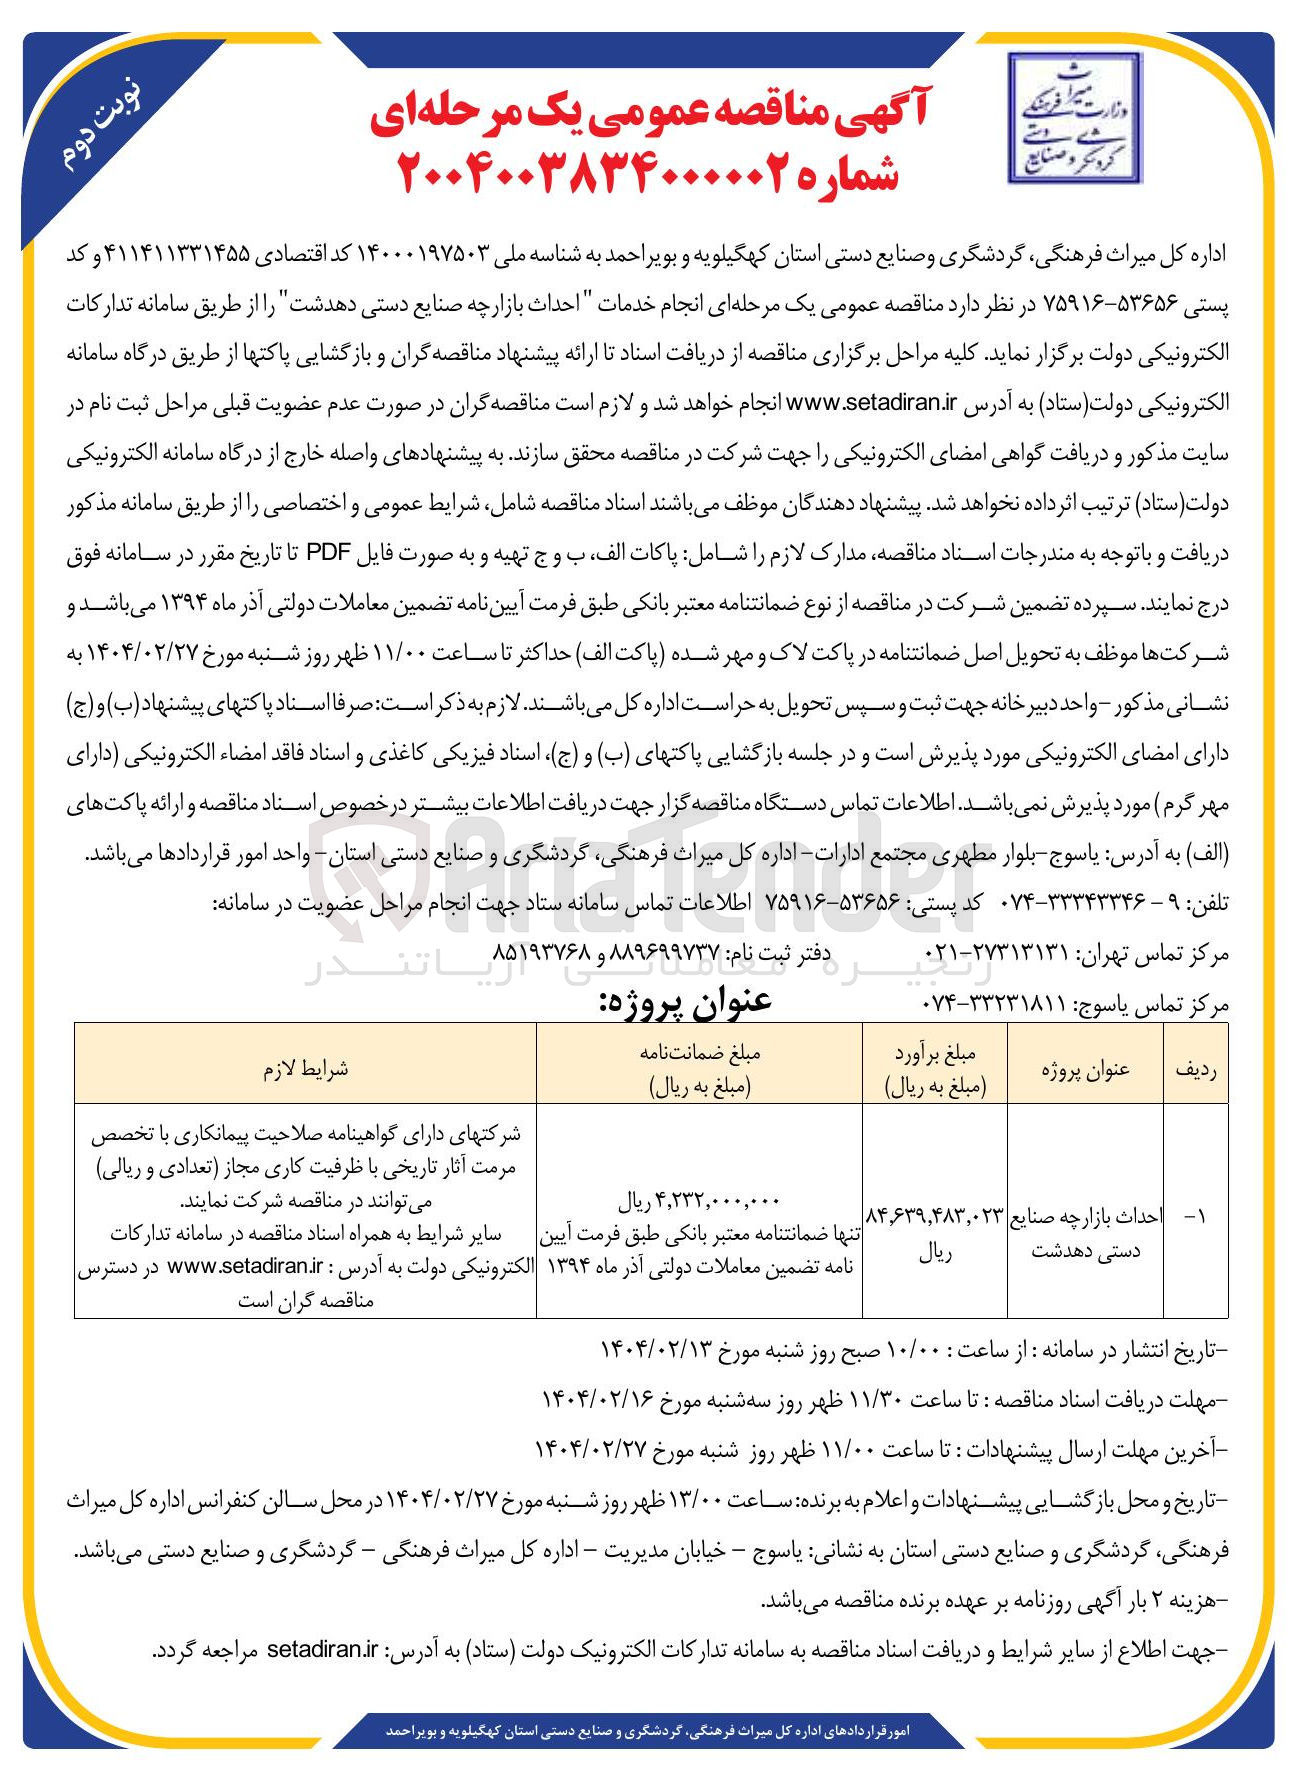 نوبت دوم
وزارت میراث فرهنگی
گردشگری و صنایع دستی
آگهی مناقصه عمومی یک مرحله‌ای
شماره ۲۰۰۴۰۰۳۸۳۴۰۰۰۰۰۲
اداره کل میراث فرهنگی، گردشگری وصنایع دستی استان کهگیلویه و بویراحمد به شناسه ملی ۱۴۰۰۰۱۹۷۵۰۳ کد اقتصادی ۴۱۱۴۱۱۳۳۱۴۵۵ و کد
پستی ۵۳۶۵۶-۷۵۹۱۶ در نظر دارد مناقصه عمومی یک مرحله‌ای انجام خدمات "احداث بازارچه صنایع دستی دهدشت" را از طریق سامانه تدارکات
الکترونیکی دولت برگزار نماید. کلیه مراحل برگزاری مناقصه از دریافت اسناد تا ارائه پیشنهاد مناقصه‌گران و بازگشایی پاکتها از طریق درگاه سامانه
الکترونیکی دولت(ستاد) به آدرس www.setadiran.ir انجام خواهد شد و لازم است مناقصه‌گران در صورت عدم عضویت قبلی مراحل ثبت نام در
سایت مذکور و دریافت گواهی امضای الکترونیکی را جهت شرکت در مناقصه محقق سازند. به پیشنهادهای واصله خارج از درگاه سامانه الکترونیکی
دولت(ستاد) ترتیب اثرداده نخواهد شد. پیشنهاد دهندگان موظف می‌باشند اسناد مناقصه شامل، شرایط عمومی و اختصاصی را از طریق سامانه مذکور
دریافت و باتوجه به مندرجات اسناد مناقصه، مدارک لازم را شامل: پاکات الف، ب و ج تهیه و به صورت فایل PDF تا تاریخ مقرر در سامانه فوق
درج نمایند. سپرده تضمین شرکت در مناقصه از نوع ضمانتنامه معتبر بانکی طبق فرمت آیین‌نامه تضمین معاملات دولتی آذر ماه ۱۳۹۴ می‌باشد و
شرکت‌ها موظف به تحویل اصل ضمانتنامه در پاکت لاک و مهر شده (پاکت الف) حداکثر تا ساعت ۱۱/۰۰ ظهر روز شنبه مورخ ۱۴۰۴/۰۲/۲۷ به
نشانی مذکور -واحد دبیرخانه جهت ثبت و سپس تحویل به حراست اداره کل می‌باشند. لازم به ذکر است: صرفا اسناد پاکتهای پیشنهاد (ب) و (ج)
دارای امضای الکترونیکی مورد پذیرش است و در جلسه بازگشایی پاکتهای (ب) و (ج)، اسناد فیزیکی کاغذی و اسناد فاقد امضاء الکترونیکی (دارای
مهر گرم) مورد پذیرش نمی‌باشد. اطلاعات تماس دستگاه مناقصه‌گزار جهت دریافت اطلاعات بیشتر درخصوص اسناد مناقصه و ارائه پاکت‌های
(الف) به آدرس: یاسوج-بلوار مطهری مجتمع ادارات- اداره کل میراث فرهنگی، گردشگری و صنایع دستی استان- واحد امور قراردادها می‌باشد.
AriaTender
تلفن: ۹ - ۳۳۳۴۳۳۴۶-۰۷۴ کد پستی: ۵۳۶۵۶-۷۵۹۱۶ اطلاعات تماس سامانه ستاد جهت انجام مراحل عضویت در سامانه:
مرکز تماس تهران: ۲۷۳۱۳۱۳۱-۰۲۱ دفتر ثبت نام: ۸۸۹۶۹۹۷۳۷ و ۸۵۱۹۳۷۶۸
زنجیره معاملاتی آریاتندر
مرکز تماس یاسوج: ۳۳۲۳۱۸۱۱-۰۷۴
عنوان پروژه:
ردیف
عنوان پروژه
مبلغ برآورد
(مبلغ به ریال)
مبلغ ضمانت‌نامه
(مبلغ به ریال)
شرایط لازم
۱-
احداث بازارچه صنایع
دستی دهدشت
۸۴,۶۳۹,۴۸۳,۰۲۳
ریال
۴,۲۳۲,۰۰۰,۰۰۰ ریال
تنها ضمانتنامه معتبر بانکی طبق فرمت آیین
نامه تضمین معاملات دولتی آذر ماه ۱۳۹۴
شرکتهای دارای گواهینامه صلاحیت پیمانکاری با تخصص
مرمت آثار تاریخی با ظرفیت کاری مجاز (تعدادی و ریالی)
می‌توانند در مناقصه شرکت نمایند.
سایر شرایط به همراه اسناد مناقصه در سامانه تدارکات
الکترونیکی دولت به آدرس : www.setadiran.ir در دسترس
مناقصه گران است
-تاریخ انتشار در سامانه : از ساعت : ۱۰/۰۰ صبح روز شنبه مورخ ۱۴۰۴/۰۲/۱۳
-مهلت دریافت اسناد مناقصه : تا ساعت ۱۱/۳۰ ظهر روز سه‌شنبه مورخ ۱۴۰۴/۰۲/۱۶
-آخرین مهلت ارسال پیشنهادات : تا ساعت ۱۱/۰۰ ظهر روز شنبه مورخ ۱۴۰۴/۰۲/۲۷
-تاریخ و محل بازگشایی پیشنهادات و اعلام به برنده: ساعت ۱۳/۰۰ ظهر روز شنبه مورخ ۱۴۰۴/۰۲/۲۷ در محل سالن کنفرانس اداره کل میراث
فرهنگی، گردشگری و صنایع دستی استان به نشانی: یاسوج - خیابان مدیریت - اداره کل میراث فرهنگی - گردشگری و صنایع دستی می‌باشد.
-هزینه ۲ بار آگهی روزنامه بر عهده برنده مناقصه می‌باشد.
-جهت اطلاع از سایر شرایط و دریافت اسناد مناقصه به سامانه تدارکات الکترونیک دولت (ستاد) به آدرس: setadiran.ir مراجعه گردد.
امورقراردادهای اداره کل میراث فرهنگی، گردشگری و صنایع دستی استان کهگیلویه و بویراحمد